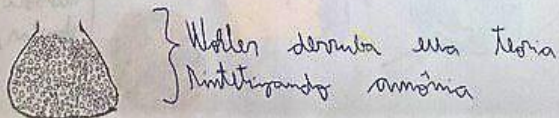 Woller derruba essa teoria
sintetizando amônia